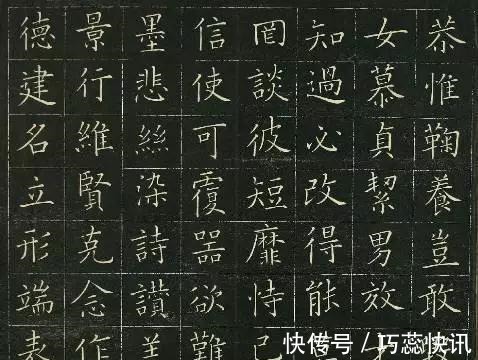 恭惟鞠養豈敢
女慕貞絜男效
知過必改得能
罔談彼短靡恃己
信使可覆器欲難
墨悲絲染詩讚羔
景行維賢克念作
德建名立形端表
快传号 / 巧蕊快讯